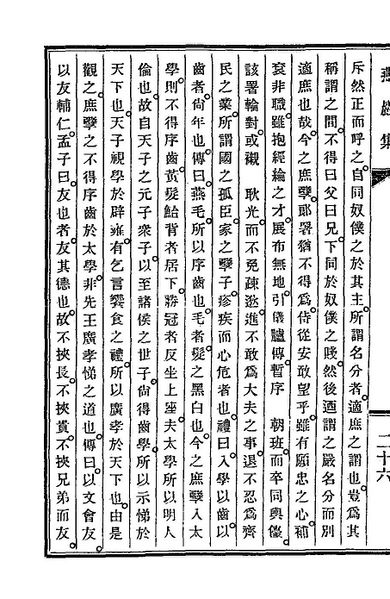 燕巖集
二十六
斥然正而呼之自同奴僕之於其主所謂名分者適庶之謂也豈爲其
稱謂之間不得曰父曰兄下同於奴僕之賤然後迺謂之嚴名分而別
適庶也哉今之庶孼郞署猶不得爲侍從安敢望乎雖有願忠之心補
袞非職雖抱經綸之才展布無地引儀臚傳暫序 朝班而卒同輿儓
該署輪對或襯 耿光而不免疎逖進不敢爲大夫之事退不忍爲齊
民之業所謂國之孤臣家之孼子疹疾而心危者也禮曰入學以齒以
齒者尙年也傳曰燕毛所以序齒也毛者髮之黑白也今之庶孼入太
學則不得序齒黃髮鮐背者居下勝冠者反坐上座夫太學所以明人
倫也故自天子之元子衆子以至諸侯之世子尙得齒學所以示悌於
天下也天子視學於辟雍有乞言饗食之禮所以廣孝於天下也由是
觀之庶孼之不得序齒於太學非先王廣孝悌之道也傳曰以文會友
以友輔仁孟子曰友也者友其德也故不挾長不挾貴不挾兄弟而友